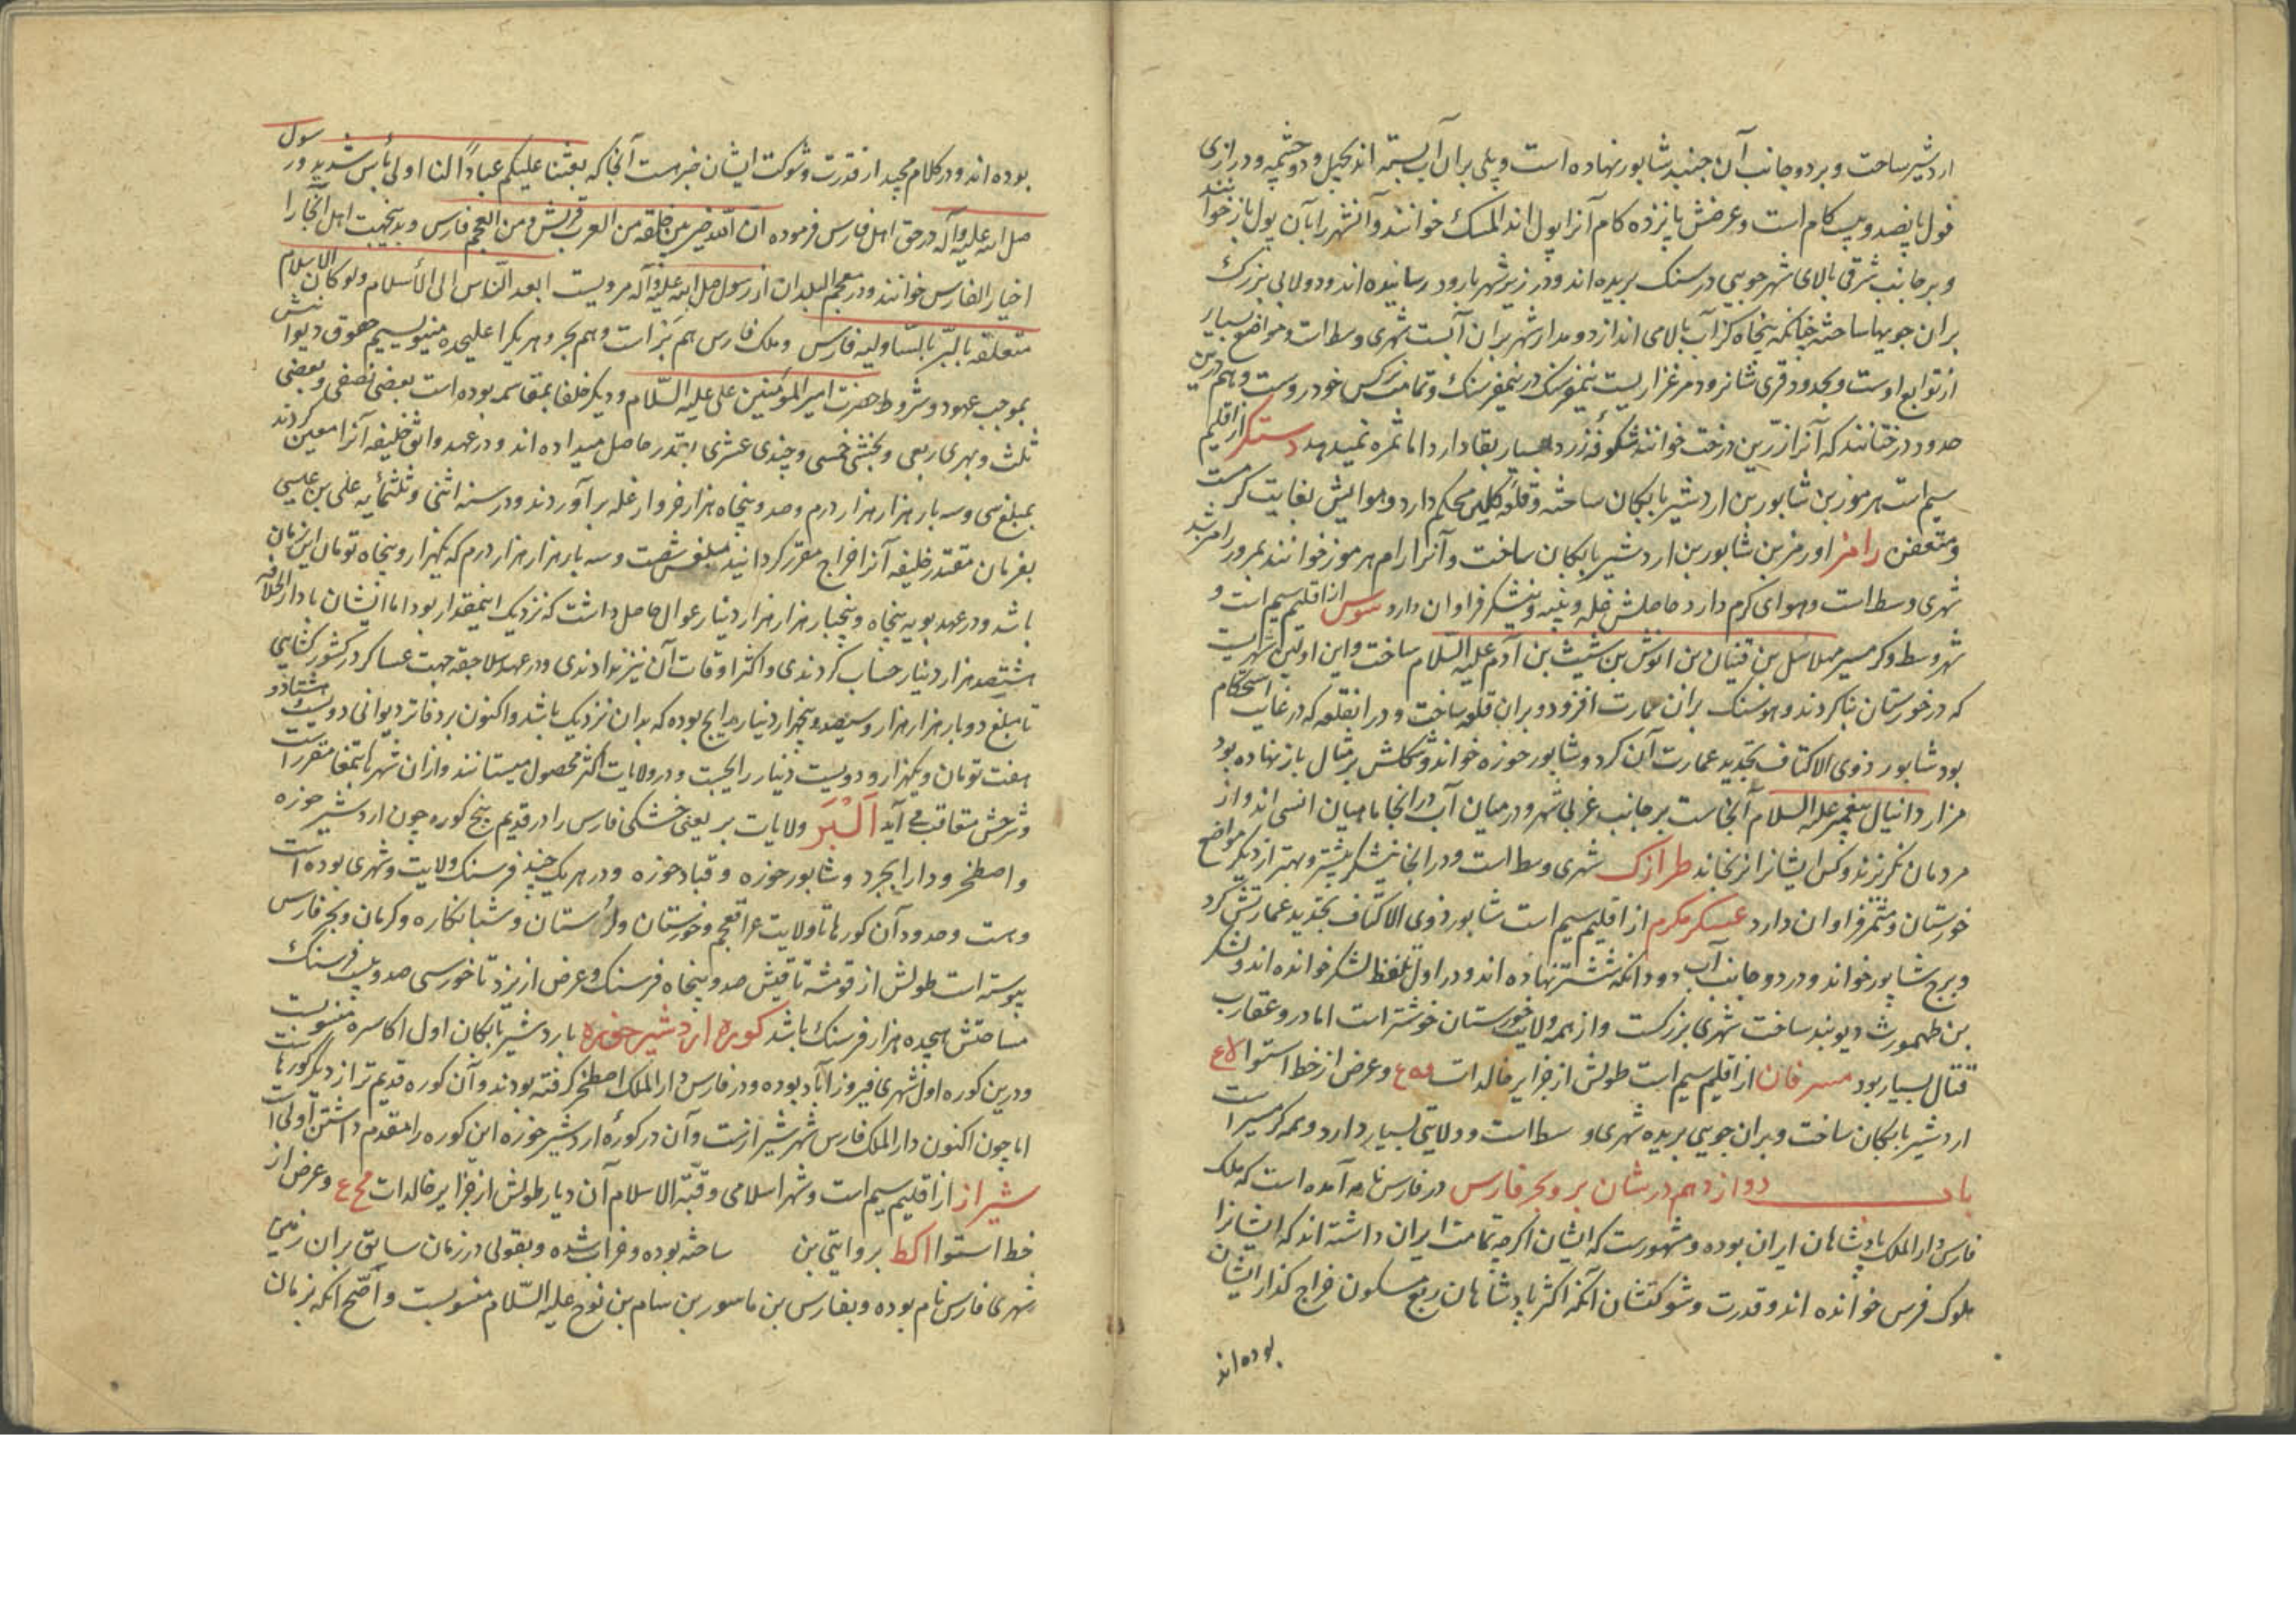 اردشیر ساخت و بر دو جانب آن جنبد شابور نهاده است و پلی بر آن آب بسته اند بچهل و دو چشمه و درازی
فول پانصد و بیست کام است و عرضش پانزده کام آنرا پول اندالمسک خوانند و آنشهر را بآن پول باز خوانند
و بر جانب شرقی بالای شهر جویی در سنک بریده اند و در زیر شهر با رود رسانیده اند و دولابی بزرک
بران جویها ساخته چنانکه پنجاه کز آب بالا می اندازد و مدار شهر بران آبست شهری وسط است و مواضع بسیار
از توابع اوست و بحدود قری شانرود مرغزاریست نیمفرسنک در نیمفرسنک و تمامت نرکس خودروست و هم درین
حدود درختانند که آنرا زرین درخت خوانند شکوفه زرد بسیار بقا دارد اما ثمره نمیدهد دستکر از اقلیم
سیم است هرموز بن شابور بن اردشیر بابکان ساخته و قلعه کلین محکم دارد و هوایش بغایت کرمست
و متعفن رامز اورمز بن شابور بن اردشیر بابکان ساخت و آنرا رام هرموز خوانند بمرور رامز شد
شهری وسط است و هوای کرم دارد حاصلش غله و پنبه و نیشکر فراوان دارد سوس از اقلیم سیم است و
شهر وسط و کرمسیر مهلائل بن قنیان بن انوش بن شیث بن آدم علیه السلام ساخت و این اولین شهریست
که در خوزستان بنا کردند و هوسنک بران عمارت افزود و بران قلعه ساخت و در انقلعه که در غایت استحکام
بود شابور ذوی الاکتاف تجدید عمارت آن کرد و شابور حوزه خواند و شکلش بر مثال باز نهاده بود
مزار دانیال پیغمبر علیه السلام آنجاست بر جانب غربی شهر و در میان آب و در انجا ماهیان انسی اند و از
مردمان نکریزند و کس ایشانرا نرنجاند طرازک شهری وسط است و در انجا نیشکر بیشتر و بهتر از دیکر مواضع
خوزستان و مثمر فراوان دارد عسکر مکرم از اقلیم سیم است شابور ذوی الاکتاف تجدید عمارتش کرد
و برج شابور خواند و در دو جانب آب دودانکه ششتر نهاده اند و در اول بلفظ لشکر خوانده اند و لشکر
بن طهمورث دیوبند ساخت شهری بزرکست و از همه ولایت خوزستان خوشتر است اما در و عقارب
قتال بسیار بود مسرقان از اقلیم سیم است طولش از جزایر خالدات و عرض از خط استوا
اردشیر بابکان ساخت و بران جویی بریده شهری وسط است و ولایتی بسیار دارد و همه کرمسیر است
باب دوازدهم در شان بر و بحر فارس در فارس نامه آمده است که ملک
فارس دار الملک پادشاهان ایران بوده و مشهورست که ایشان اکرچه تمامت ایران داشته اند که ایشانرا
ملوک فرس خوانده اند و قدرت و شوکتشان آنکه اکثر پادشاهان ربع مسکون خراج کذار ایشان
بوده اند
بوده اند و در کلام مجید از قدرت و شوکت ایشان خبر هست آنجا که بعثنا علیکم عبادا لنا اولی بأس شدید و رسول
صلی الله علیه و آله در حق اهل فارس فرموده ان الله خیر بین خلقه من العرب قریش و من العجم فارس و بدینجهت اهل آنجا را
اخیار الفارس خوانند و در معجم البلدان از رسول صلی الله علیه و آله مرویست ابعد الناس الی الأسلام ولو کان الاسلام
متعلقه بالثریا لتناولیه فارس و ملک فارس هم بر است و هم بحر و هر یکرا علیحده مینویسیم حقوق دیوانیش
بموجب عهود و شروط حضرت امیر المؤمنین علی علیه السلام و دیکر خلفا بمقاسمه بوده است بعضی نصفی و بعضی
ثلث و بهری ربعی و بخشی خمسی و چندی عشری بقدر حاصل میداده اند و در عهد واثق خلیفه آنرا معین کردند
بمبلغ سی و سه بار هزار هزار درم و صد و پنجاه هزار خروار غله بر آوردند و در سنه اثنی و ثلثمأیه علی بن عیسی
بفرمان مقتدر خلیفه آنرا خراج مقرر کردانید مبلغ شصت و سه بار هزار هزار درم که یکهزار و پنجاه تومان این زمان
باشد و در عهد بویه پنجاه و پنجبار هزار هزار دینار عوال حاصل داشت که نزدیک اینمقدار بود اما ایشان با دار الخلافه
هشتصد هزار دینار حساب کردندی و اکثر اوقات آن نیز ندادندی و در عهد سلاجقه جهت عساکر در کشور کشایی
تا مبلغ دو بار هزار هزار و سیصد و پنجهزار دینار رایج بوده که بدان نزدیک باشد و اکنون بر دفاتر دیوانی دویست و هشتاد و
هفت تومان و یکهزار و دویست دینار رایجست و در ولایات اکثر محصول میستانند و از ان شهرها بتمغا مقرر است
و شرحش متعاقب می آید البر ولایات بر یعنی خشکی فارس را در قدیم پنج کوره چون اردشیر حوزه
و اصطخر و دارابجرد و شابور حوزه و قباد حوزه و در هر یک چند فرسنک ولایت و شهری بوده است
و هست و حدود آن کورها تا ولایت عراقعجم و خوزستان و لرستان و شبانکاره و کرمان و بحر فارس
پیوسته است طولش از قومشه تا قیش صد و پنجاه فرسنک و عرض از یزد تا خورسی صد و بیست فرسنک
مساحتش هیجده هزار فرسنک باشد کوره اردشیر حوزه باردشیر بابکان اول اکاسره منسوبست
و درین کوره اول شهری فیروزآباد بوده و در فارس دار الملک اصطخر کرفته بودند و آن کوره قدیم تر از دیکر کورها است
اما چون اکنون دار الملک فارس شهر شیراز است و آن در کورۀ اردشیر خوزه این کوره را مقدم داشتن اولی است
شیراز از اقلیم سیم است و شهر اسلامی و قبة الاسلام آن دیار طولش از جزایر خالدات و عرض از
خط استوا کط بروایتی بن ساخته بوده و خراب شده و بقولی در زمان سابق بران زمین
شهری فارس نام بوده و بفارس بن ماسور بن سام بن نوح علیه السلام منسوبست و اصح آنکه بزمان